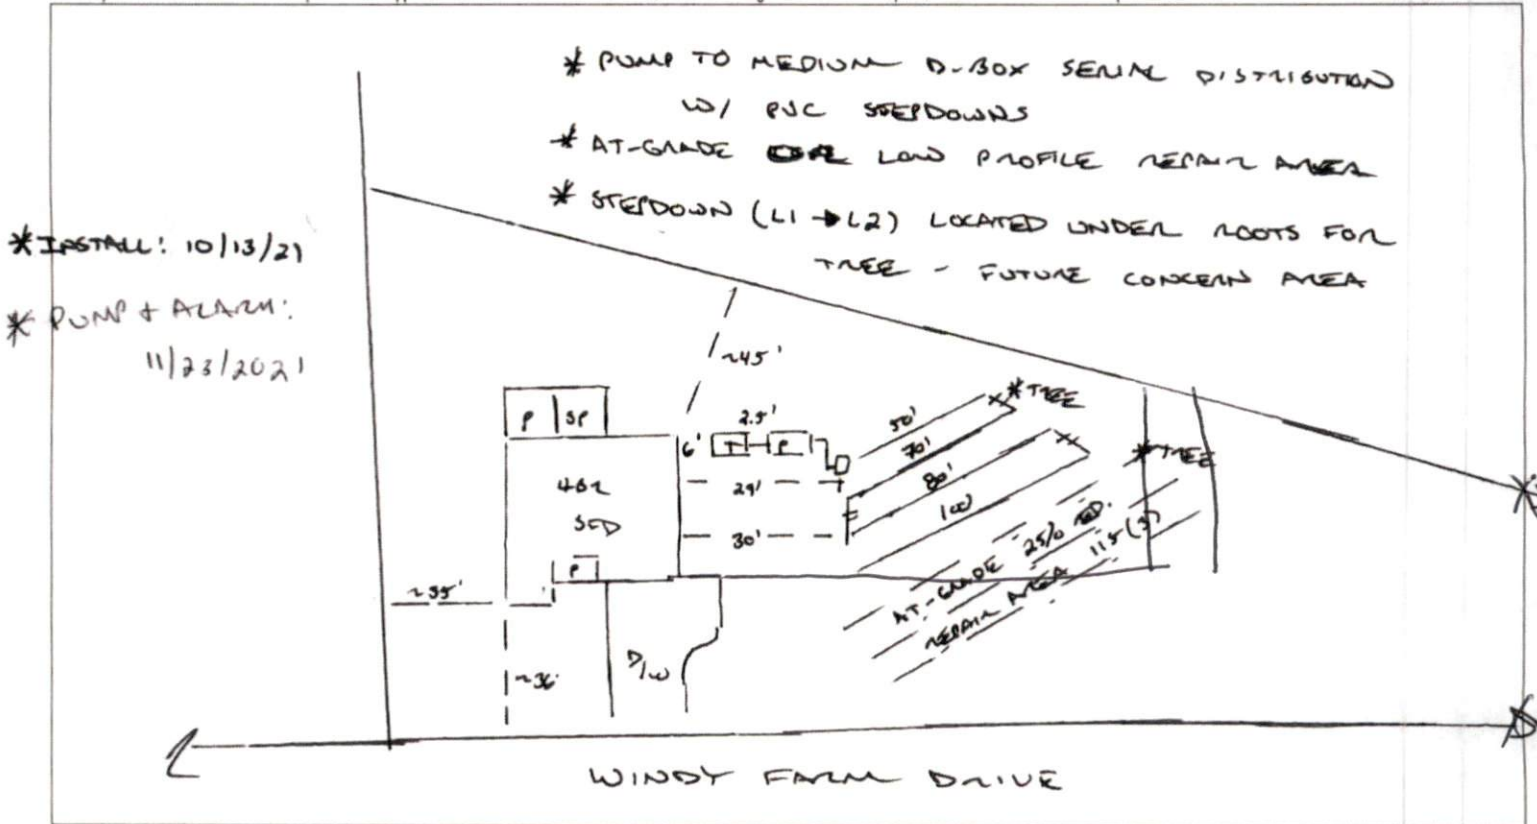 * PUMP TO MEDIUM D-BOX SERIAL DISTRIBUTION
W/ PVC STEPDOWNS
* AT-GRADE LOW PROFILE REPAIR AREA
* STEPDOWN (L1 → L2) LOCATED UNDER ROOTS FOR
TREE - FUTURE CONCERN AREA
* INSTALL: 10/13/21
* PUMP & ALARM:
11/23/2021
~45'
P SP
6' T P 2.5'
50' * TREE
70'
80'
100'
* TREE
4BR
SFD
29'
30'
P
~35'
~36'
D/W
AT-GRADE 25% RED.
REPAIR AREA 115 (3)
WINDY FARM DRIVE